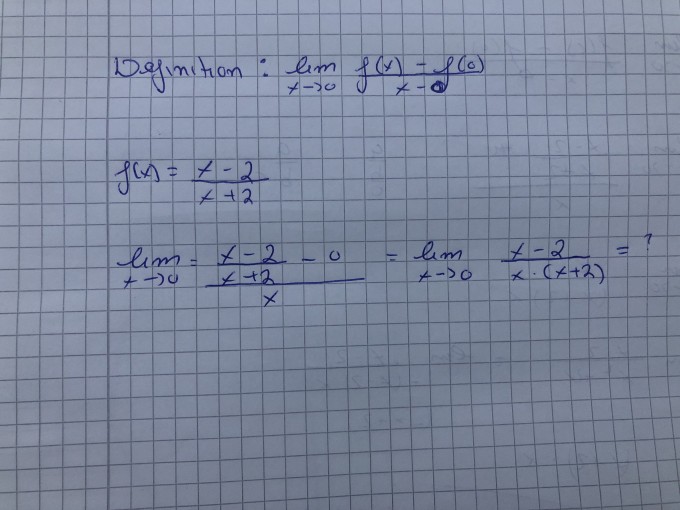 Definition : lim x→0 (f(x) - f(0))/(x - 0)
f(x) = (x - 2)/(x + 2)
lim x→0 = ((x - 2)/(x + 2) - 0)/x = lim x→0 (x - 2)/(x · (x+2)) = ?